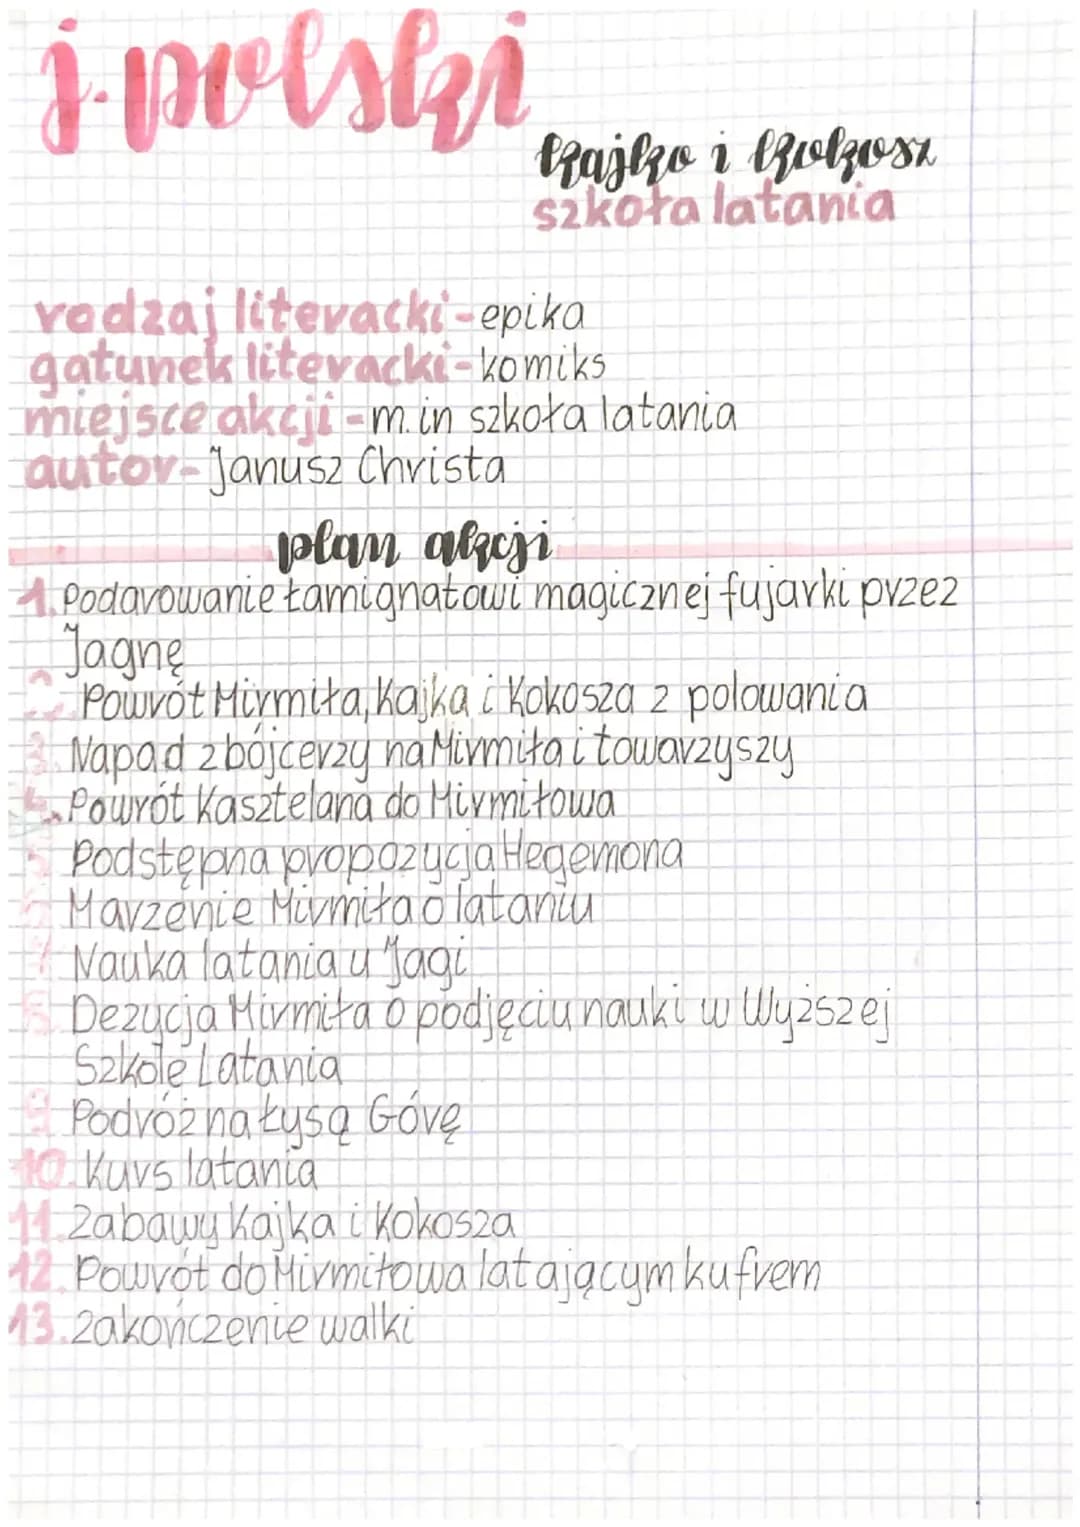 j. polski
kajko i kokosz
szkoła latania
rodzaj literacki - epika
gatunek literacki - komiks
miejsce akcji - m.in szkoła latania
autor - Janusz Christa
plan akcji
1. Podarowanie Łamignatowi magicznej fujarki przez
Jagnę
2. Powrót Mirmiła, Kajka i Kokosza z polowania
3. Napad zbójcerzy na Mirmiła i towarzyszy
4. Powrót Kasztelana do Mirmiłowa
5. Podstępna propozycja Hegemona
6. Marzenie Mirmiła o lataniu
7. Nauka latania u Jagi
8. Dezycja Mirmiła o podjęciu nauki w Wyższej
Szkole Latania
9. Podróż na Łysą Górę
10. Kurs latania
11. Zabawy Kajka i Kokosza
12. Powrót do Mirmiłowa latającym kufrem
13. Zakończenie walki